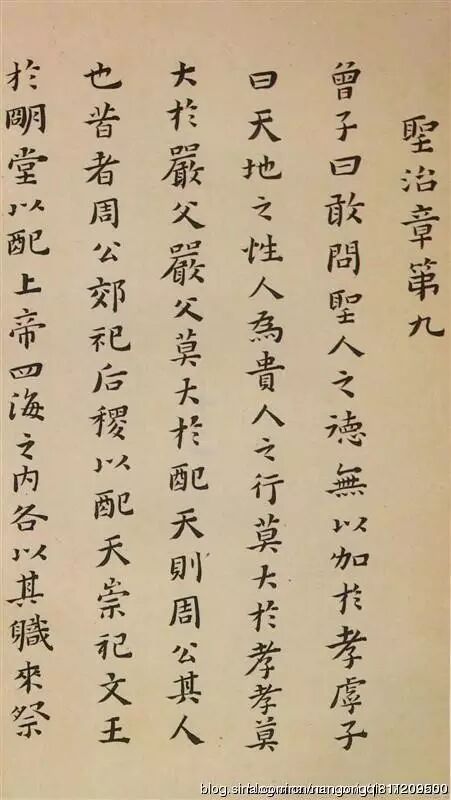 聖治章第九
曾子曰敢問聖人之德無以加於孝虖子
曰天地之性人為貴人之行莫大於孝孝莫
大於嚴父嚴父莫大於配天則周公其人
也昔者周公郊祀后稷以配天崇祀文王
於朙堂以配上帝四海之内各以其職來祭